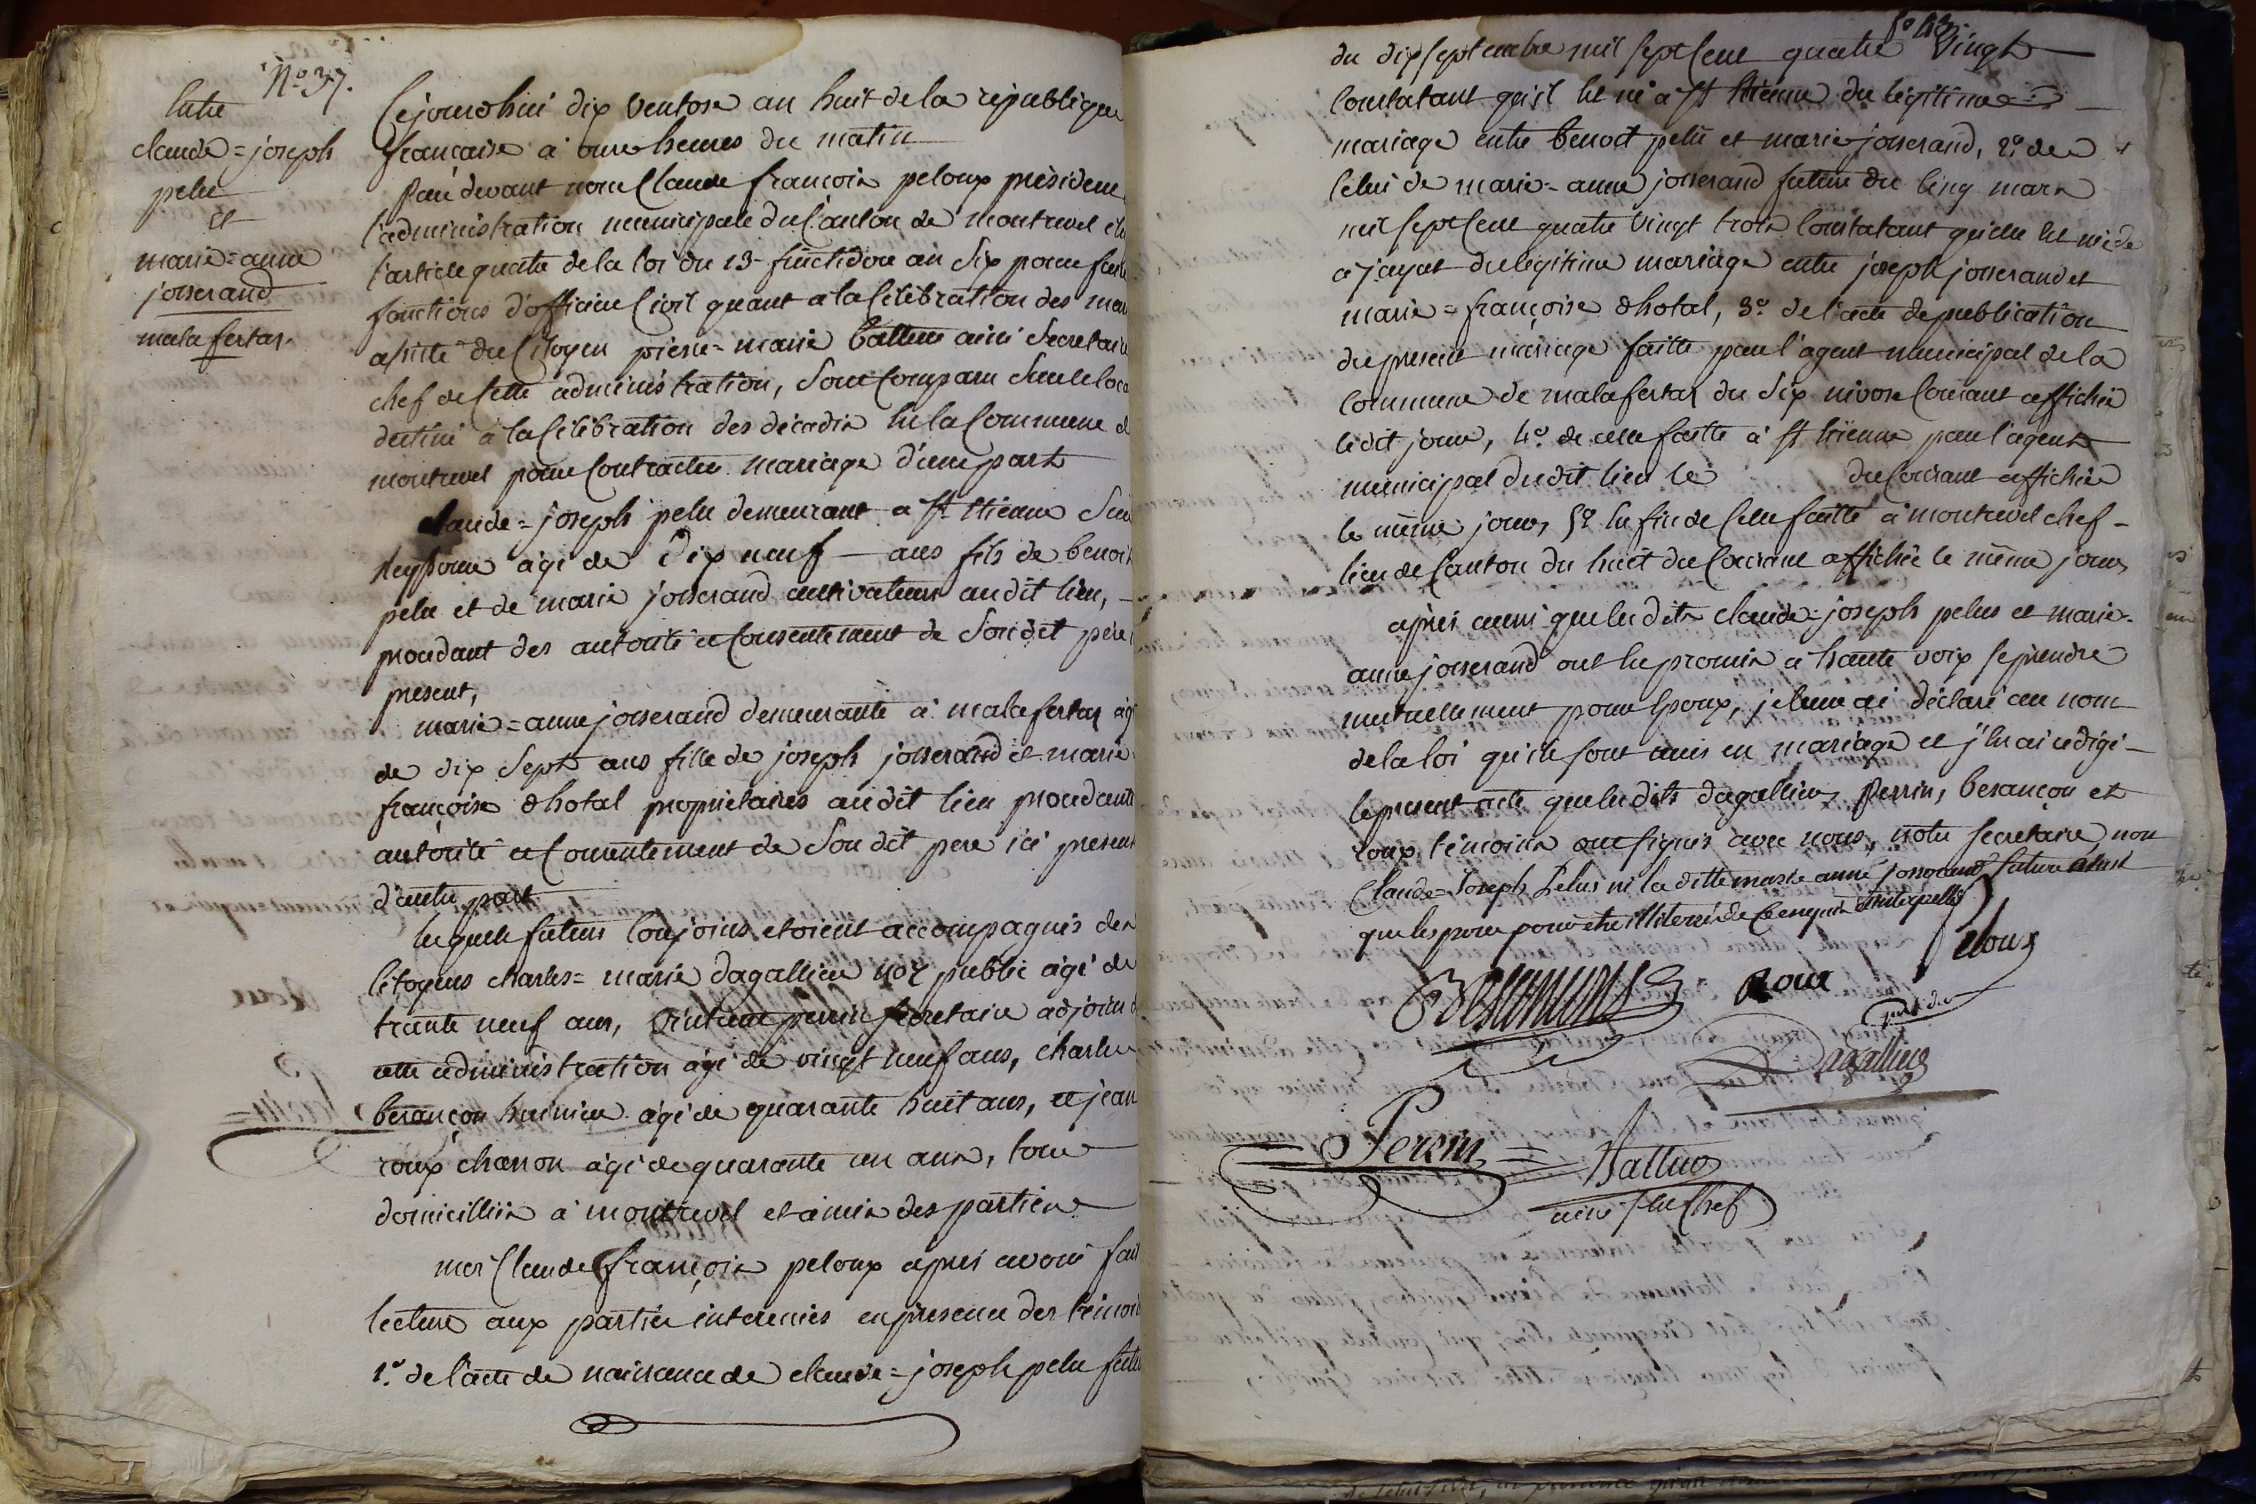 N.o 37.
Entre
claude=joseph
pelu
et
marie=anne
josserand
malafertas.
Cejourdhui dix ventose an huit de la république
française à onze heures du matin
Pardevant nous Claude françois peloux président
l'administration municipale du Canton de montrevel
l'article quatre de la loi du 13 fructidor an Six pour faire
fonctions d'officier Civil quant a la Célébration des
assisté du Citoyen pierre=marie battur ainé Secretaire
chef de Cette administration, Sont Comparu Sur le local
destiné à la Célébration des décadis en la Commune de
montrevel pour Contracter mariage d'une part
claude=joseph pelu demeurant a St Etienne Sur
Reyssouze âgé de dix neuf ans fils de benoit
pelu et de marie josserand cultivateurs audit lieu,
procédant des autorité et Consentement de Son dit père
présent,
marie=anne josserand demeurante à malafertas âgée
de dix Sept ans fille de joseph josserand et marie
françoise dhotal propriétaires audit lieu procédante
autorité et Consentement de Son dit pere ici présent
d'autre part
lesquels futurs Conjoins etoient accompagnés des
Citoyens charles=marie dagallier no.re public âgé de
trante neuf ans, perrin secretaire adjoint
cette administration âgé de vingt neuf ans, charles
besançon huissier âgé de quarante huit ans, et jean
roux charron âgé de quarante un ans, tous
domicilliés à montrevel et amis des parties
moi Claude françois peloux après avoir fait
lecture aux parties interessées en présence des témoins
1.o de l'acte de naissance de claude=joseph pelu futur
fo 43.
du dix septembre mil sept Cent quatre vingt
Constatant qu'il est né à St Etienne du légitime
mariage entre benoit pelu et marie josserand, 2.o de
Celui de marie=anne josserand future du Cinq mars
mil sept Cent quatre vingt trois Constatant qu'elle est née
a jayat du légitime mariage entre joseph josserand et
marie=françoise dhotal, 3.o de l'acte de publication
du present mariage faitte par l'agent municipal de la
Commune de malafertas du dix nivose Courant affichée
ledit jour, 4.o de celle faitte à St Etienne par l'agent
municipal dudit lieu le du Courant affichée
le même jour, 5.o Enfin de Celle faitte à montrevel chef-
lieu de Canton du huit du Courant affichée le même jour
après aussi que lesdits claude=joseph pelus et marie-
anne josserand ont eu promis à haute voix se prendre
mutuellement pour Epoux, j'ai déclaré au nom
de la loi qu'ils sont unis en mariage et j'en ai redigé
le present acte que lesdits dagallier, Perrin, besançon et
roux témoins ont signés avec nous, notre secretaire, non
Claude=Joseph Pelus ni la ditte marie anne josserand future
que les pour être illiterés de ce enquis et interpellés
Besançons
Roux
Peloux
presid.
Dagallier
Perrin
Battur
ainé Secr Chef